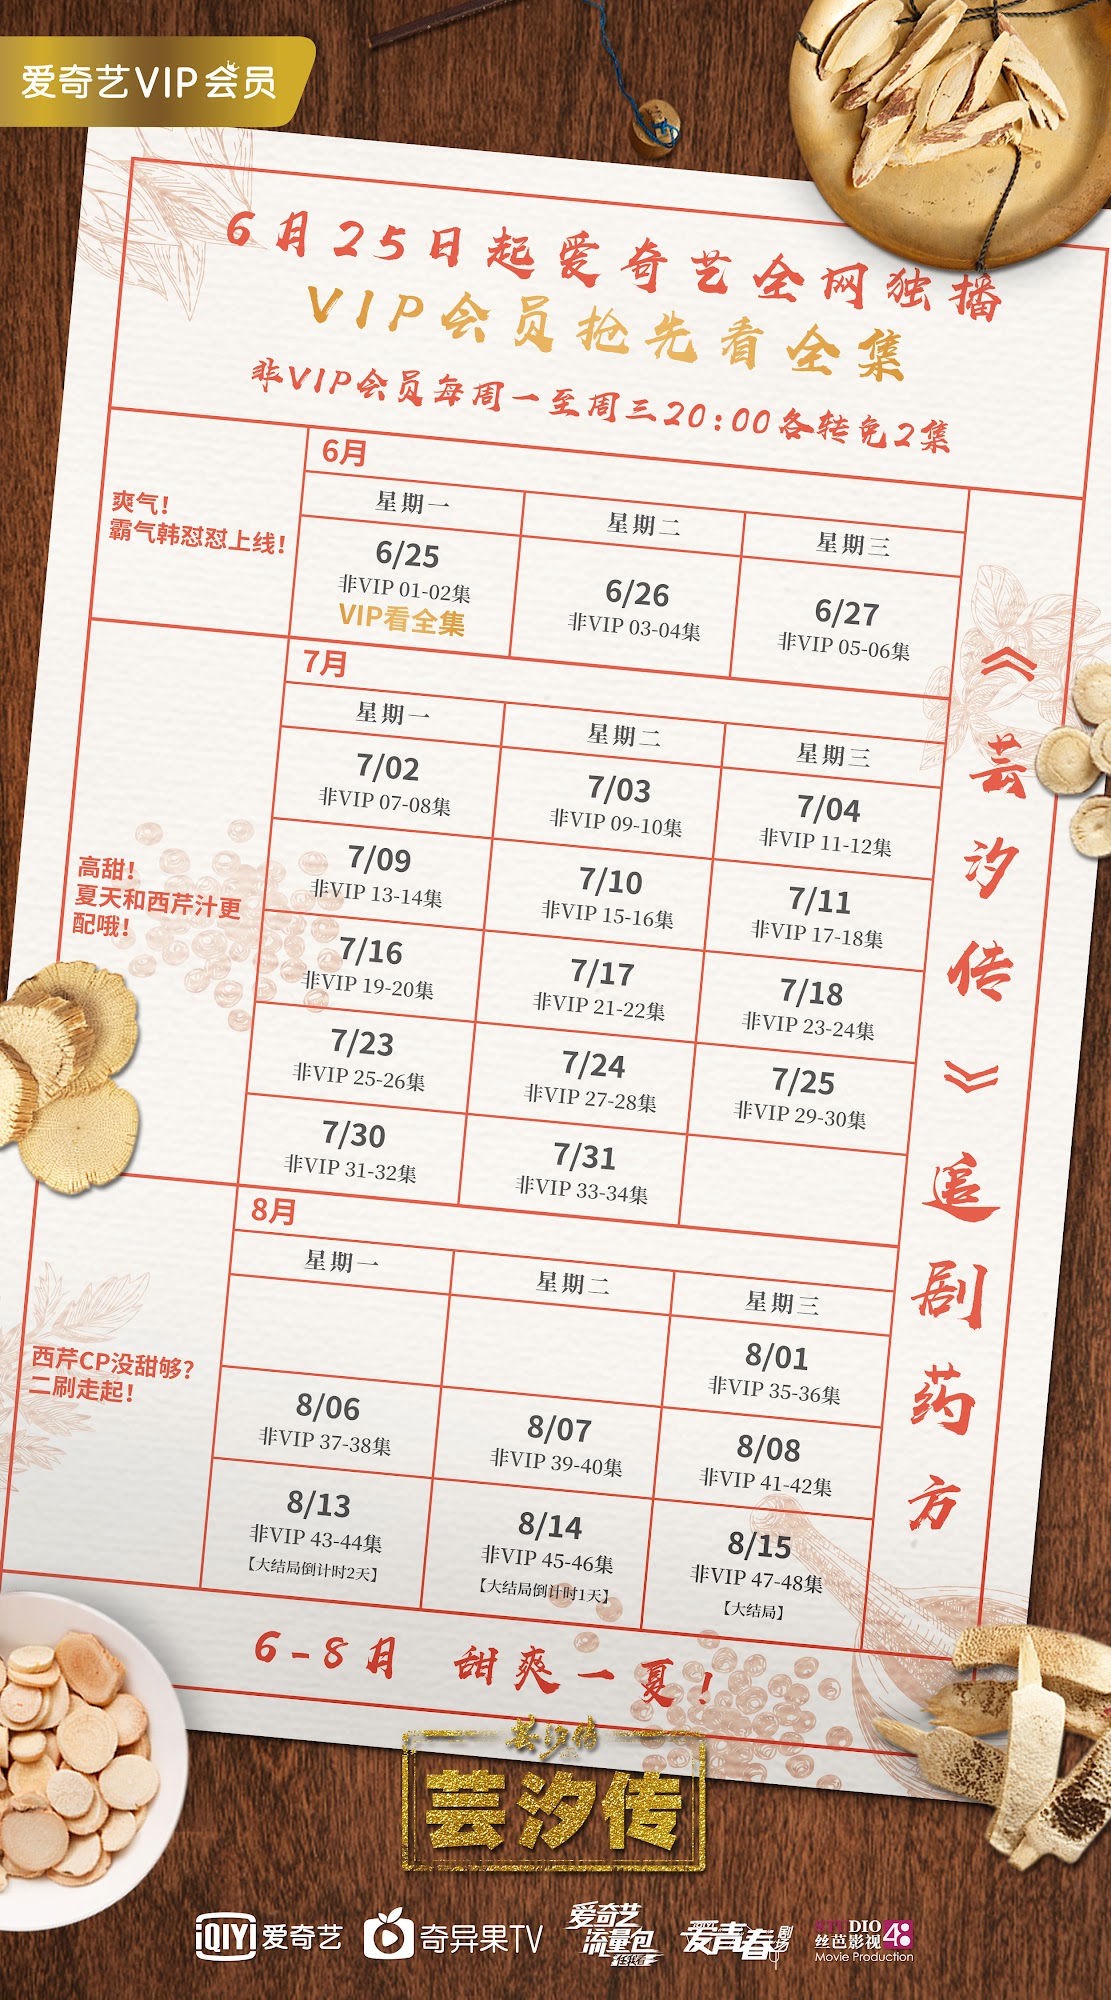 爱奇艺VIP会员
6月25日起爱奇艺全网独播
VIP会员抢先看全集
非VIP会员每周一至周三20:00各转免2集
爽气!
霸气韩怼怼上线!
6月
星期一
星期二
星期三
6/25
非VIP 01-02集
VIP看全集
6/26
非VIP 03-04集
6/27
非VIP 05-06集
高甜!
夏天和西芹汁更
配哦!
7月
星期一
星期二
星期三
7/02
非VIP 07-08集
7/03
非VIP 09-10集
7/04
非VIP 11-12集
7/09
非VIP 13-14集
7/10
非VIP 15-16集
7/11
非VIP 17-18集
7/16
非VIP 19-20集
7/17
非VIP 21-22集
7/18
非VIP 23-24集
7/23
非VIP 25-26集
7/24
非VIP 27-28集
7/25
非VIP 29-30集
7/30
非VIP 31-32集
7/31
非VIP 33-34集
西芹CP没甜够?
二刷走起!
8月
星期一
星期二
星期三
8/01
非VIP 35-36集
8/06
非VIP 37-38集
8/07
非VIP 39-40集
8/08
非VIP 41-42集
8/13
非VIP 43-44集
【大结局倒计时2天】
8/14
非VIP 45-46集
【大结局倒计时1天】
8/15
非VIP 47-48集
【大结局】
《芸汐传》追剧药方
6-8月 甜爽一夏!
芸汐传
芸汐传
QIY 爱奇艺
奇异果TV
爱奇艺
流量包
任我看
爱青春剧场
STUDIO
丝芭影视48
Movie Production